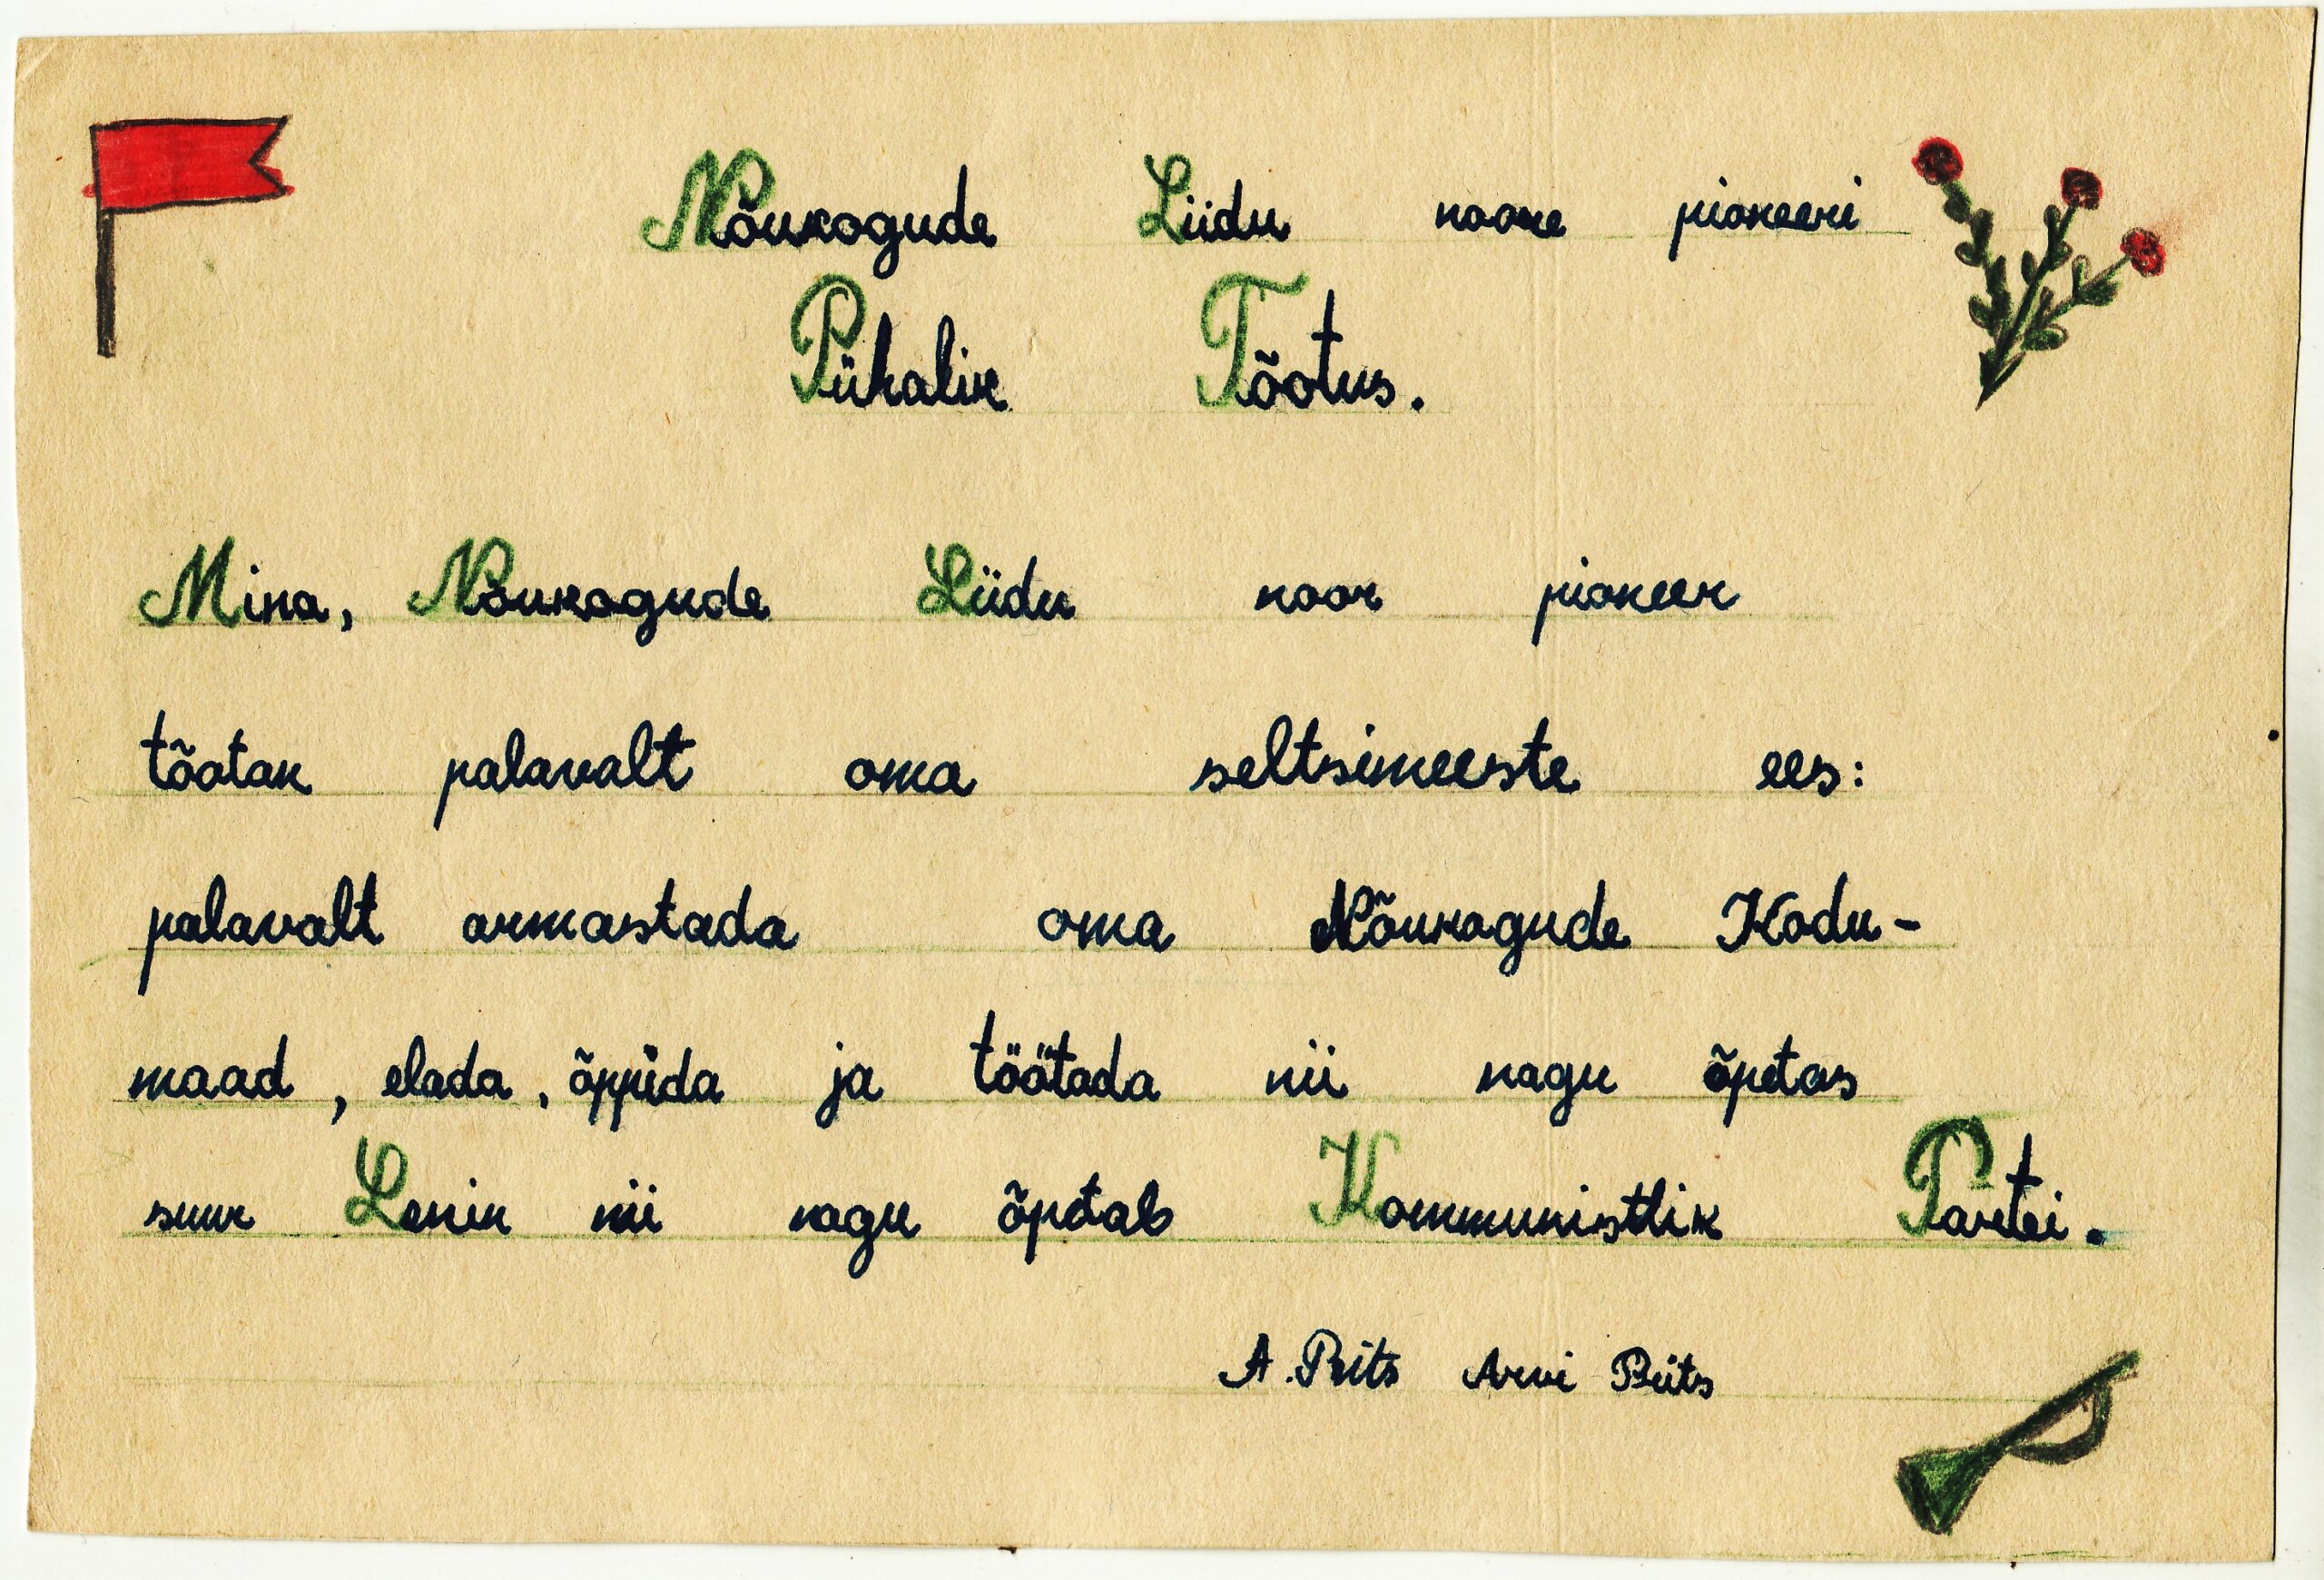 Nõukogude Liidu noore pioneeri
Pühalik Tõotus.
Mina, Nõukogude Liidu noor pioneer
tõotan palavalt oma seltsimeeste ees:
palavalt armastada oma Nõukogude Kodu-
maad, elada, õppida ja töötada nii nagu õpetas
suur Lenin nii nagu õpetab Kommunistlik Partei.
A. Prits Arvi Prits